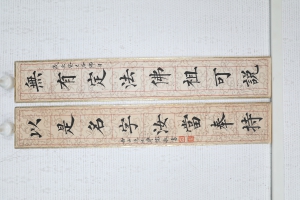 無有定法佛祖可說
以是名字汝當奉持